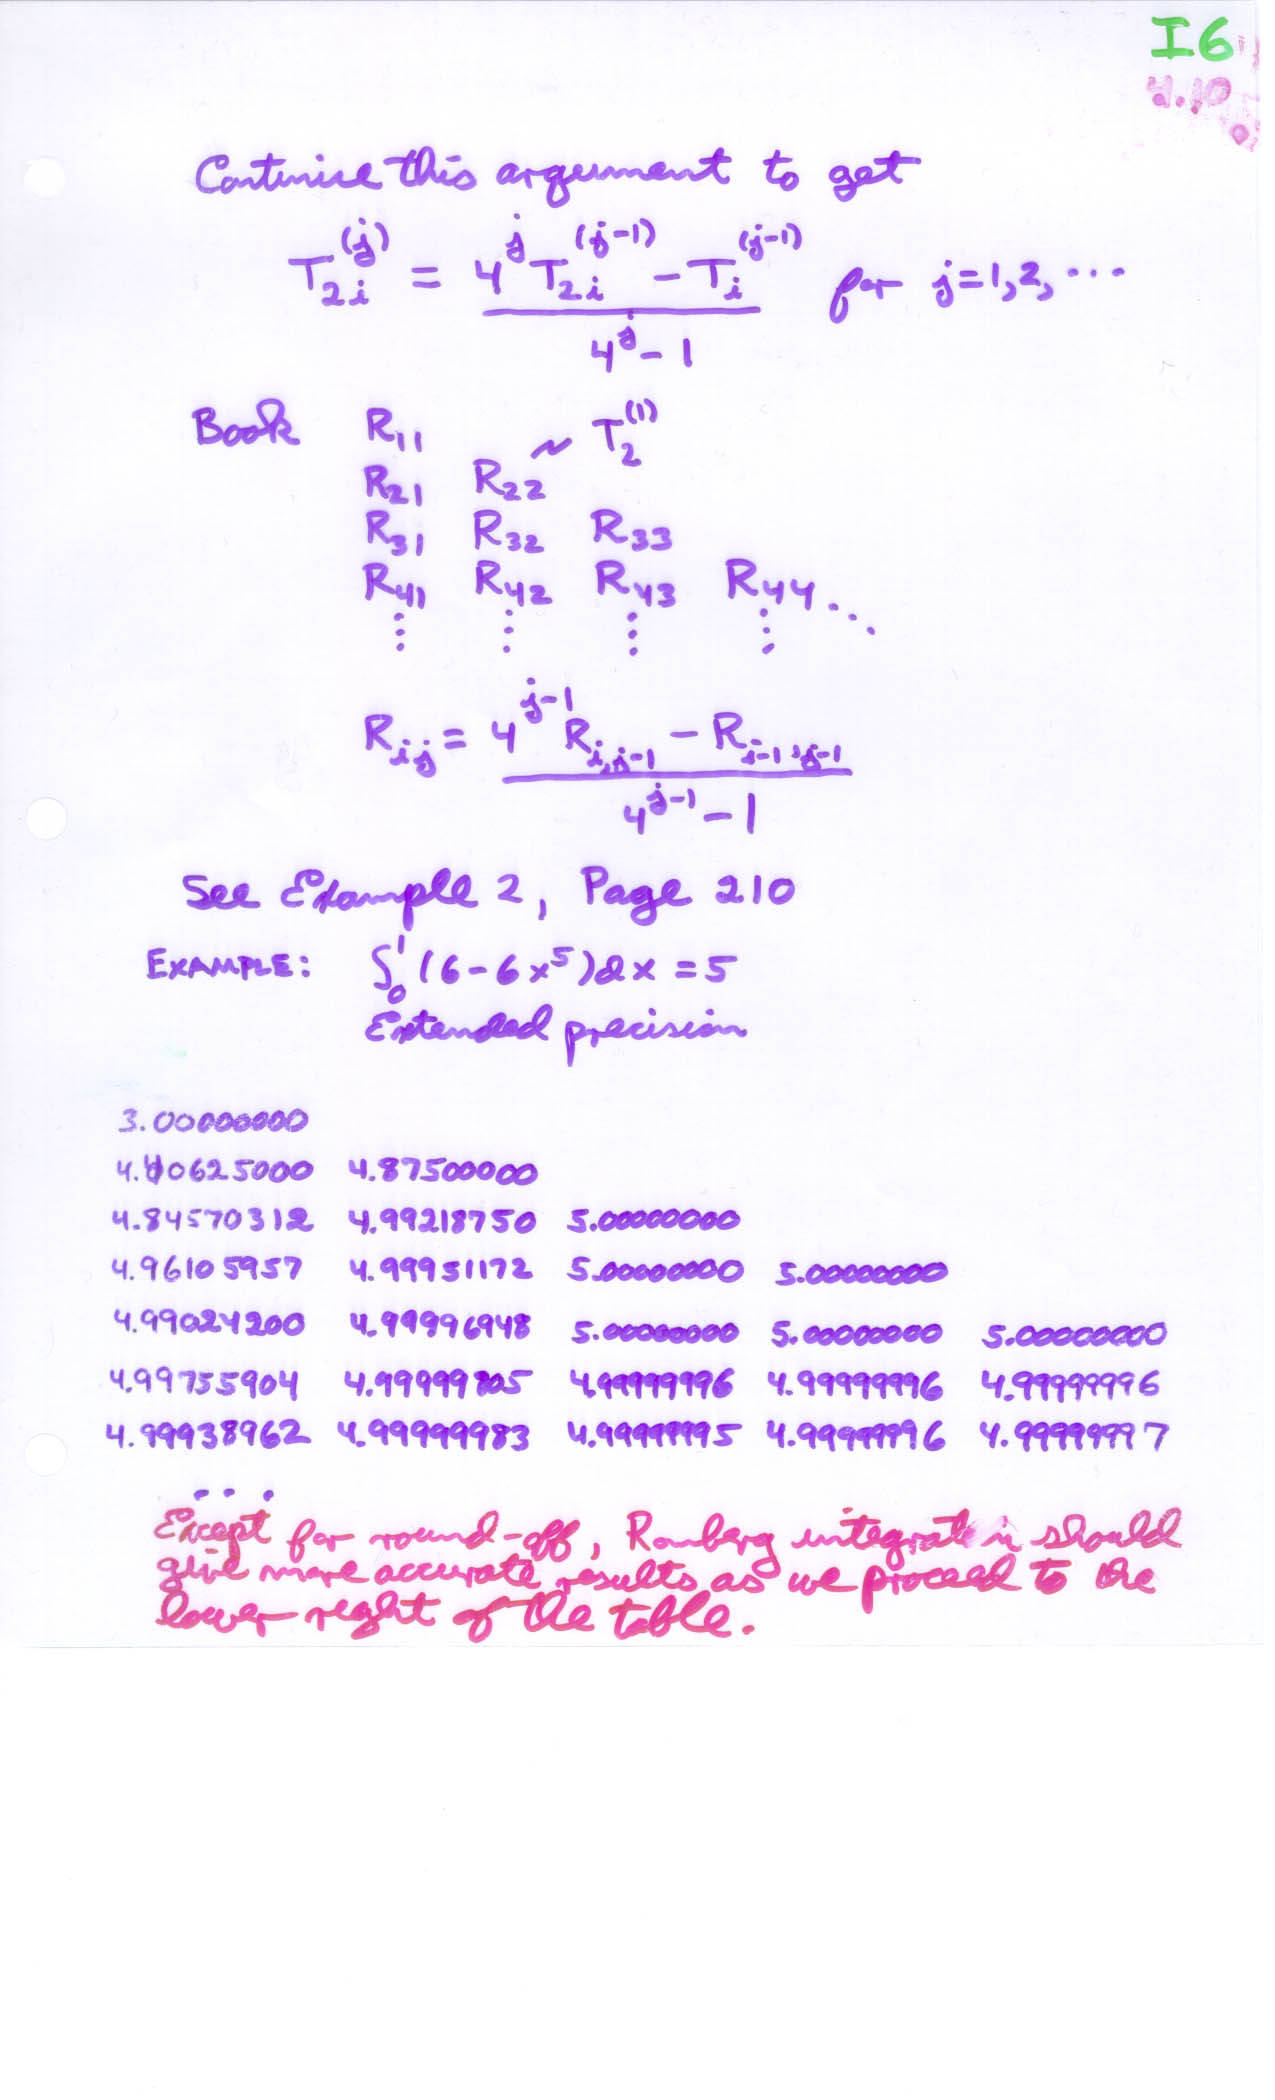 I6
4.10
Continue this argument to get
T_{2i}^{(j)} = \frac{4^j T_{2i}^{(j-1)} - T_i^{(j-1)}}{4^j - 1} for j=1,2,...
Book R_{11} ~ T_2^{(1)}
R_{21} R_{22}
R_{31} R_{32} R_{33}
R_{41} R_{42} R_{43} R_{44} ...
R_{ij} = \frac{4^{j-1} R_{i,j-1} - R_{i-1,j-1}}{4^{j-1} - 1}
See Example 2, Page 210
EXAMPLE: ∫_0^1 (6-6x^5)dx = 5
Extended precision
3.00000000
4.40625000 4.87500000
4.84570312 4.99218750 5.00000000
4.96105957 4.99951172 5.00000000 5.00000000
4.99024200 4.99996948 5.00000000 5.00000000 5.00000000
4.99755904 4.99999805 4.99999996 4.99999996 4.99999996
4.99938962 4.99999983 4.99999995 4.99999996 4.99999997
...
Except for round-off, Romberg integration should
give more accurate results as we proceed to the
lower right of the table.